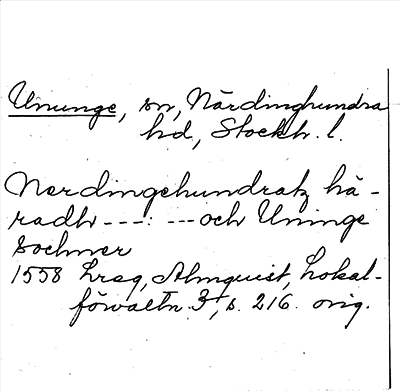 Ununge, sn, Närdinghundra
hd, Stockh. l.
Nerdingehundratz hä-
radh ---: --- och Uninge
sochner
1558 hrsg, Almquist, Lokal-
förvaltn. 3, s. 216. orig.